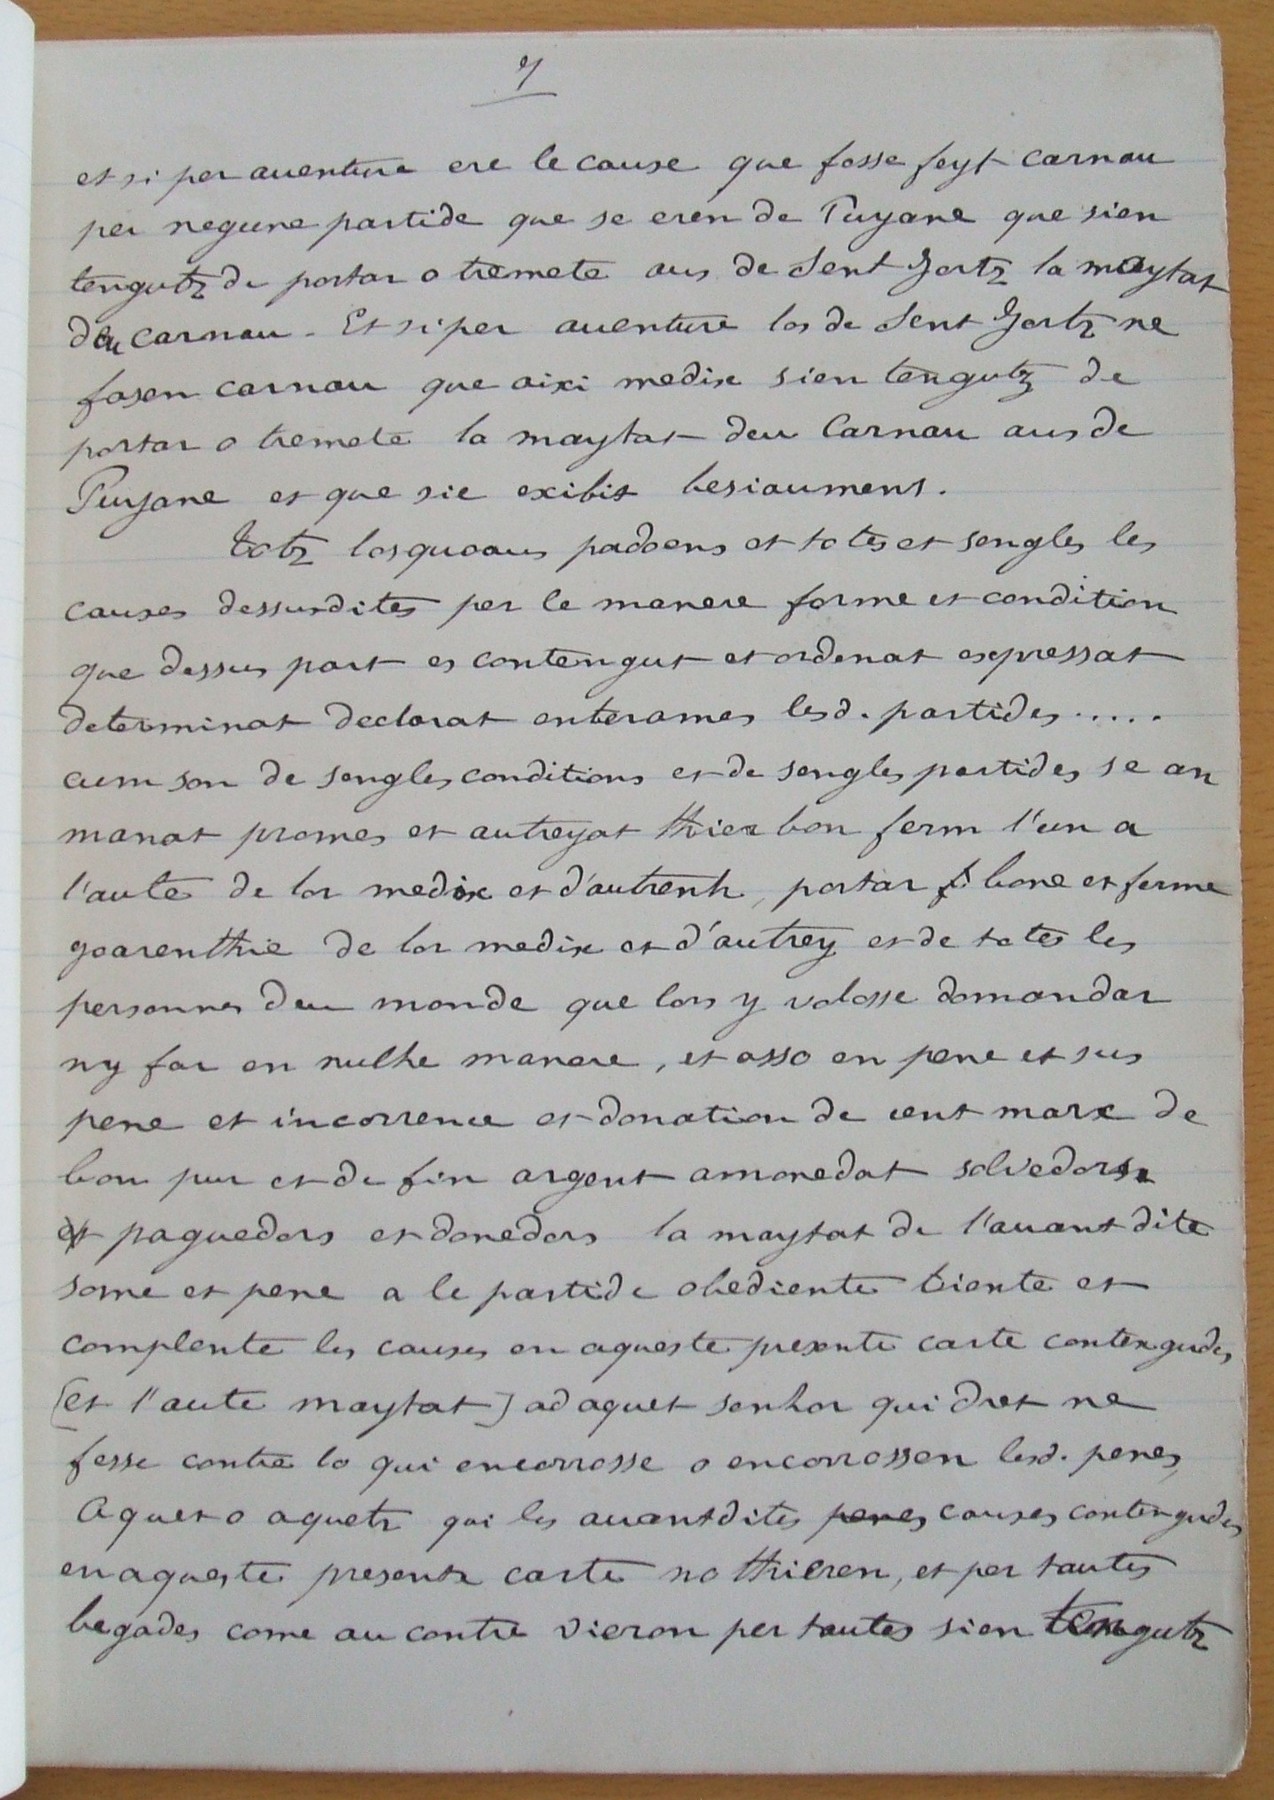 7
et si per auenture ere le cause que fosse feyt carnau
per negune partide que se eren de Puyane que sien
tengutz de portar o tremete aus de Sent Gortz la maytat
deu carnau. Et si per auenture los de Sent Gortz ne
fasen carnau que aixi medix sien tengutz de
portar o tremete la maytat deu Carnau aus de
Puyane et que sie exibit besiaument.
Totz losquoaus padoens et totes et sengles les
causes dessusdites per le manere forme et condition
que dessus part es contengut et ordenat expressat
determinat declarat enterames lesd. partides .....
cum son de sengles conditions et de sengles partides se an
manat promes et autreyat thier bon ferm l'un a
l'aute de lor medix et d'autrenh, portar bone et ferme
goarenthie de lor medix et d'autrey et de totes les
personnes deu monde que lors y volosse domandar
ny far en nulhe manere, et asso en pene et sus
pene et incorrence et donation de cent marx de
bon pur et de fin argent amonedat solvedors
et paguedors et donedors la maytat de l'auant dite
some et pene a le partide obediente tiente et
complente les causes en aqueste presente carte contengudes
[et l'aute maytat] ad aquet senhor qui dret ne
fesse contre lo qui encorrosse o encorrossen lesd. penes,
Aquet o aquetz qui les auantdites penes causes contengudes
en aqueste presente carte no thieren, et per tantes
begades come au contre vieron per tantes sien tengutz